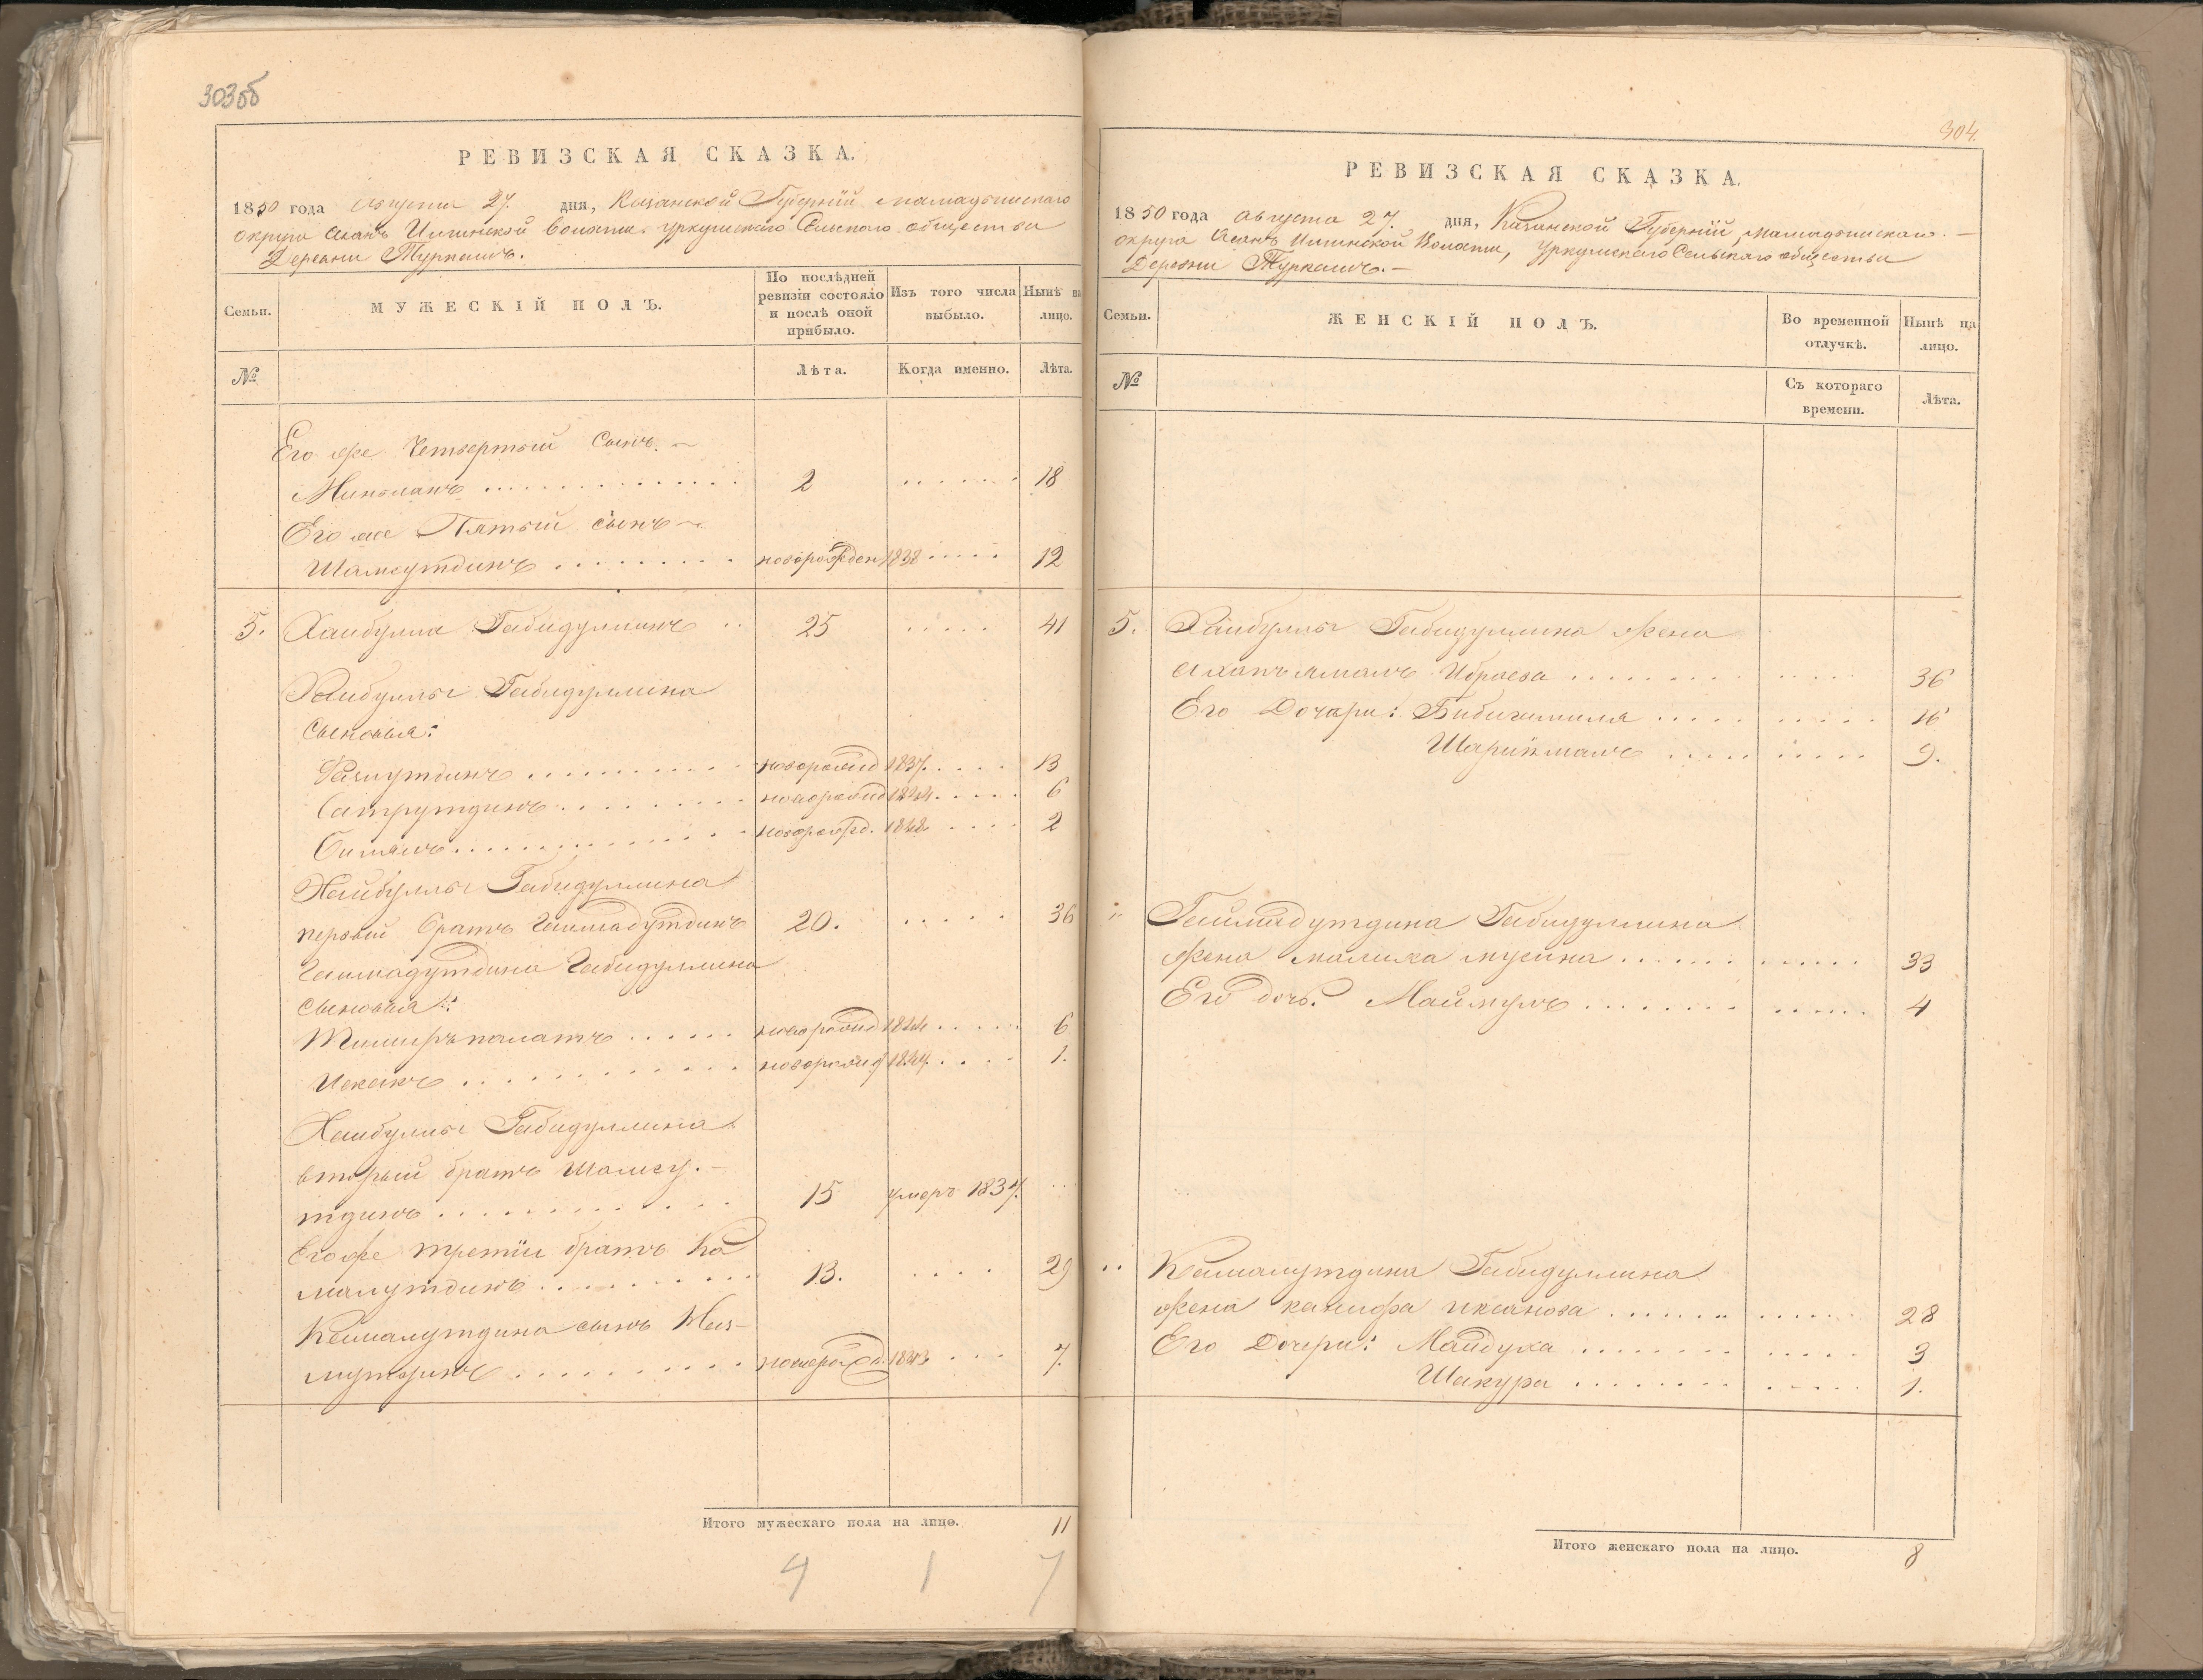 303об
РЕВИЗСКАЯ СКАЗКА.
1850 года Августа 27. дня, Казанской Губернiи Мамадышскаго
округа Асанъ Илгинской волости Уркушскаго Сельскаго общества
Деревни Туркашъ.
Семьи.
МУЖЕСКIЙ ПОЛЪ.
По послѣдней ревизiи состояло и послѣ оной прибыло.
Изъ того числа выбыло.
Нынѣ на лицо.
№
Лѣта.
Когда именно.
Лѣта.
Его же Четвертый Сынъ
2 18
Его же Пятый сынъ
Шамсутдинъ новорожден 1838 12
5. Хайбулла Габидуллинъ 25 41
Хайбуллы Габидуллина
Сыновья:
новорожд 1837. 13
новорожд 1844 6
новорожд. 1848 2
Хайбуллы Габидуллина
первый братъ Гаймадутдинъ 20. 36
Гаймадутдина Габидуллина
сыновья:
Тимиръпалатъ новорожд 1844 6
новорожд 1.
Хайбуллы Габидуллина
вторый братъ Шамсу-
тдинъ 15 умеръ 1837.
Его же третiй братъ Ка
малутдинъ 13. 29
Камалутдина сынъ
новорожд. 1843 7.
Итого мужескаго пола на лицо. 11
4 1 7
304.
РЕВИЗСКАЯ СКАЗКА.
1850 года Августа 27. дня, Казанской Губернiи, Мамадышскаго
округа Асанъ Илгинской Волости, Уркушскаго Сельскаго общества
Деревни Туркашъ.
Семьи.
ЖЕНСКIЙ ПОЛЪ.
Во временной отлучкѣ.
Нынѣ на лицо.
№
Съ котораго времени.
Лѣта.
5. Хайбуллы Габидуллина жена
Ибраева 36
Его Дочери: 16
9.
Гаймадутдина Габидуллина
жена Малика Мусина 33
Его дочь. 4
Камалутдина Габидуллина
жена 28
Его Дочери: 3
Шакура 1.
Итого женскаго пола на лицо. 8